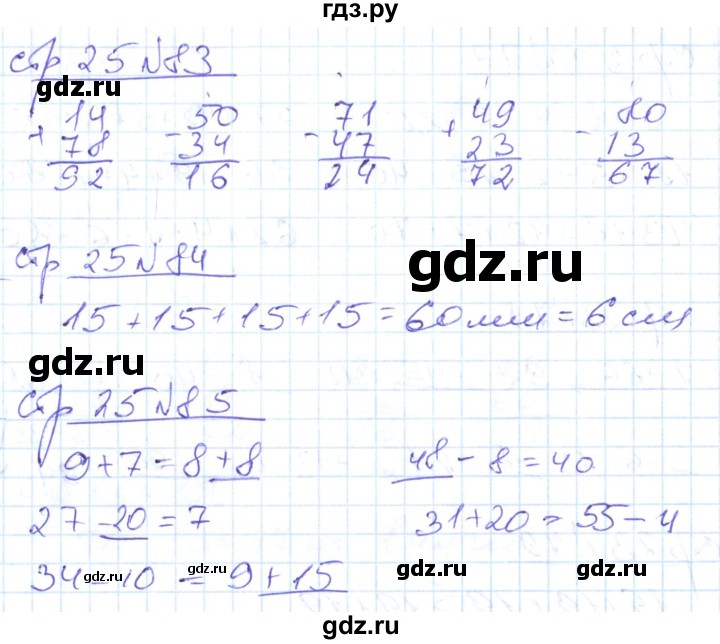 гдз.ру
стр 25 №83
14 50 71 49 80
+ 78 - 34 - 47 + 23 - 13
92 16 24 72 67
gdz.ru
стр 25 №84
gdz.ru
15 + 15 + 15 + 15 = 60 мм = 6 см
gdz.ru
стр 25 №85
9 + 7 = 8 + 8 48 - 8 = 40
27 - 20 = 7 31 + 20 = 55 - 4
34 - 10 = 9 + 15
gdz.ru gdz.ru gdz.ru